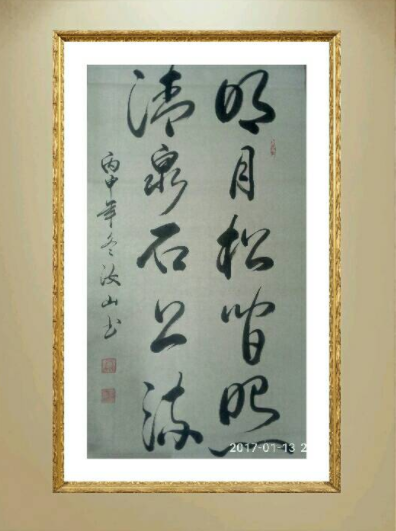 明月松间照
清泉石上流
丙申年冬汝山书
2017-01-13 2